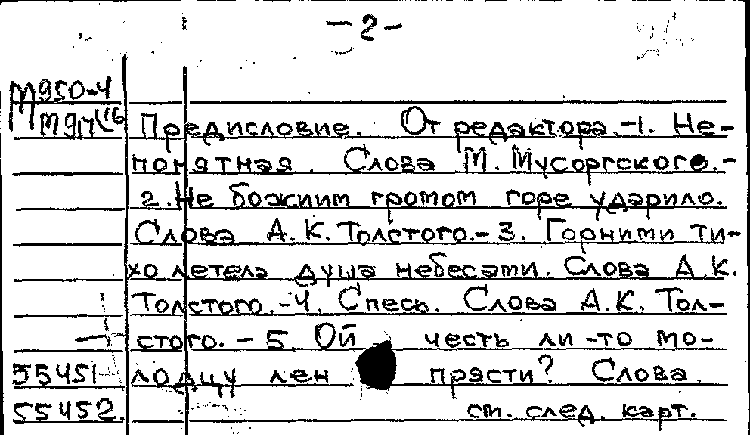 -2-
М950-4
М917
Предисловие. От редактора.-1. Не-
понятная. Слова М. Мусоргского.-
2. Не божиим громом горе ударило.
Слова А.К. Толстого.-3. Горними ти-
хо летела душа небесами. Слова А.К.
Толстого.-4. Спесь. Слова А.К. Тол-
стого.-5. Ой честь ли -то мо-
55451 лодцу лен прясти? Слова
55452. см. след. карт.